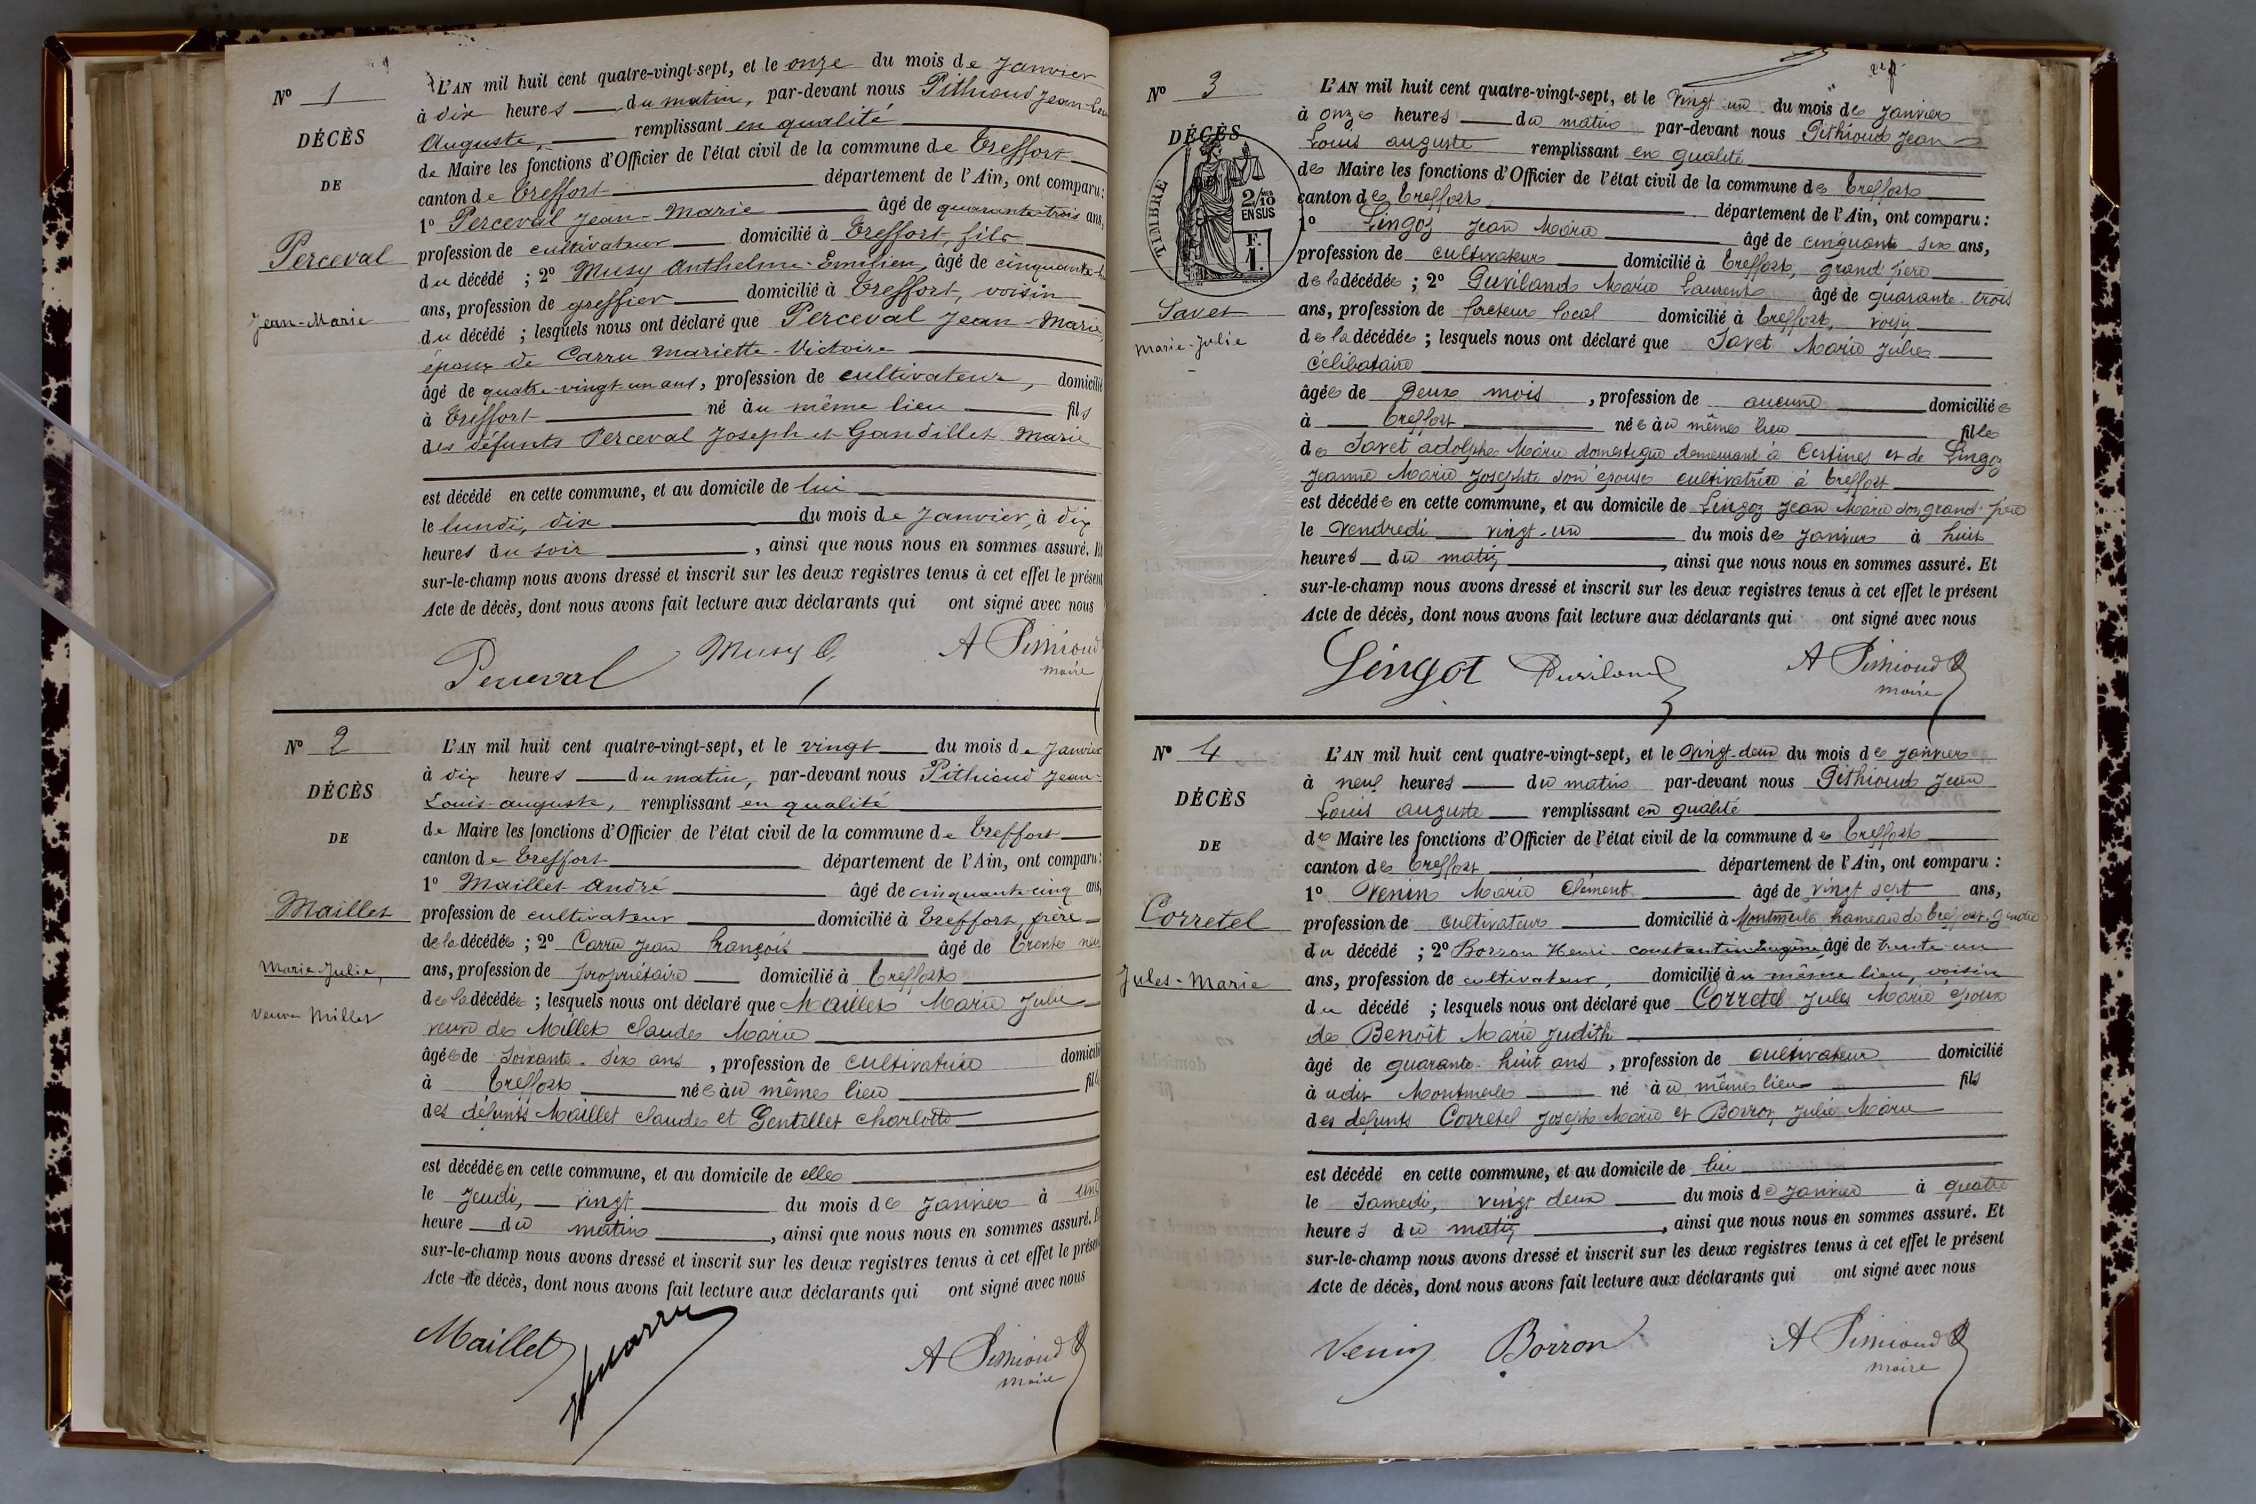 N° 1
DÉCÈS
DE
Perceval
Jean-Marie
L'AN mil huit cent quatre-vingt-sept, et le onze du mois de Janvier
à dix heures du matin, par-devant nous Pithioud Jean-Louis
Auguste, remplissant en qualité
de Maire les fonctions d'Officier de l'état civil de la commune de Treffort
canton de Treffort département de l'Ain, ont comparu :
1° Perceval Jean-Marie âgé de quarante-trois ans,
profession de cultivateur domicilié à Treffort, fils
du décédé ; 2° Musy Anthelme-Emilien, âgé de cinquante-
ans, profession de greffier domicilié à Treffort, voisin
du décédé ; lesquels nous ont déclaré que Perceval Jean-Marie,
époux de Carru Mariette-Victoire
âgé de quatre-vingt-un ans, profession de cultivateur, domicilié
à Treffort né au même lieu fils
des défunts Perceval Joseph et Gandillet Marie
est décédé en cette commune, et au domicile de lui
le lundi, dix du mois de Janvier, à dix
heures du soir, ainsi que nous nous en sommes assuré. Et
sur-le-champ nous avons dressé et inscrit sur les deux registres tenus à cet effet le présent
Acte de décès, dont nous avons fait lecture aux déclarants qui ont signé avec nous
Perceval Musy A Pithioud
maire
N° 2
DÉCÈS
DE
Maillet
Marie-Julie,
veuve Millet
L'AN mil huit cent quatre-vingt-sept, et le vingt du mois de Janvier
à dix heures du matin, par-devant nous Pithioud Jean-
Louis-auguste, remplissant en qualité
de Maire les fonctions d'Officier de l'état civil de la commune de Treffort
canton de Treffort département de l'Ain, ont comparu :
1° Maillet André âgé de cinquante-cinq ans,
profession de cultivateur domicilié à Treffort, frère
de la décédée ; 2° Carru Jean François âgé de trente neuf
ans, profession de propriétaire domicilié à Treffort
de la décédée ; lesquels nous ont déclaré que Maillet Marie Julie
veuve de Millet Claude Marie
âgée de soixante-six ans, profession de cultivatrice domicilié
à Treffort née au même lieu fille
des défunts Maillet Claude et Gentillet Charlotte
est décédée en cette commune, et au domicile de elle
le Jeudi, vingt du mois de Janvier à une
heure du matin, ainsi que nous nous en sommes assuré. Et
sur-le-champ nous avons dressé et inscrit sur les deux registres tenus à cet effet le présent
Acte de décès, dont nous avons fait lecture aux déclarants qui ont signé avec nous
Maillet Carru A Pithioud
maire
N° 3
DÉCÈS
TIMBRE
2/10
EN SUS
F.
1.
Javet
Marie-Julie
L'AN mil huit cent quatre-vingt-sept, et le vingt un du mois de Janvier
à onze heures du matin par-devant nous Pithioud Jean
Louis auguste remplissant en qualité
de Maire les fonctions d'Officier de l'état civil de la commune de Treffort
canton de Treffort département de l'Ain, ont comparu :
1° Lingoz Jean Marie âgé de cinquante six ans,
profession de cultivateur domicilié à Treffort, grand père
de la décédée ; 2° Puviland Marie Laurent âgé de quarante-trois
ans, profession de facteur local domicilié à Treffort, voisin
de la décédée ; lesquels nous ont déclaré que Javet Marie Julie
célibataire
âgée de deux mois, profession de aucune domiciliée
à Treffort née au même lieu fille
de Javet adolphe Marie domestique demeurant à Certines et de Lingoz
Jeanne Marie Josephte son épouse cultivatrice à Treffort
est décédée en cette commune, et au domicile de Lingoz Jean Marie son grand-père
le vendredi vingt-un du mois de Janvier à huit
heures du matin, ainsi que nous nous en sommes assuré. Et
sur-le-champ nous avons dressé et inscrit sur les deux registres tenus à cet effet le présent
Acte de décès, dont nous avons fait lecture aux déclarants qui ont signé avec nous
Lingot Puviland A Pithioud
maire
N° 4
DÉCÈS
DE
Corretel
Jules-Marie
L'AN mil huit cent quatre-vingt-sept, et le vingt-deux du mois de Janvier
à neuf heures du matin par-devant nous Pithioud Jean
Louis auguste remplissant en qualité
de Maire les fonctions d'Officier de l'état civil de la commune de Treffort
canton de Treffort département de l'Ain, ont comparu :
1° Venin Marie Clément âgé de vingt sept ans,
profession de cultivateur domicilié à Montmerle hameau de Treffort, gendre
du décédé ; 2° Borron Henri constantin Eugène âgé de trente-un
ans, profession de cultivateur, domicilié au même lieu, voisin
du décédé ; lesquels nous ont déclaré que Corretel Jules Marie époux
de Benoît Marie Judith
âgé de quarante-huit ans, profession de cultivateur domicilié
à udit Montmerle né au même lieu fils
des defunts Corretel Joseph Marie et Borron Julie Marie
est décédé en cette commune, et au domicile de lui
le Samedi, vingt deux du mois de Janvier à quatre
heures du matin, ainsi que nous nous en sommes assuré. Et
sur-le-champ nous avons dressé et inscrit sur les deux registres tenus à cet effet le présent
Acte de décès, dont nous avons fait lecture aux déclarants qui ont signé avec nous
Venin Borron A Pithioud
maire